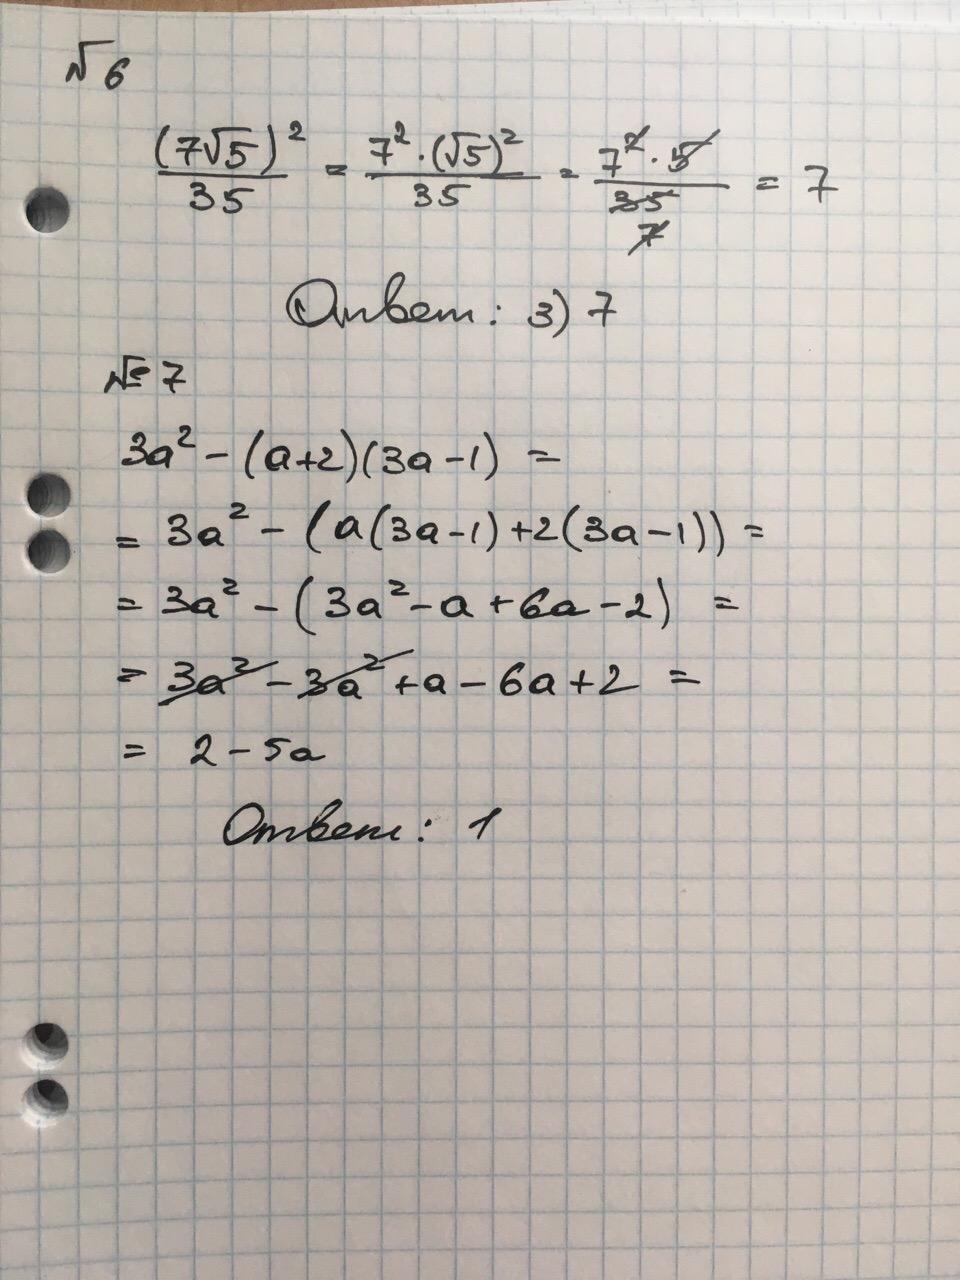 № 6
(7√5)²/35 = 7²·(√5)²/35 = 7²·5/35 7 = 7
Ответ: 3) 7
№ 7
3a² - (a+2)(3a-1) =
= 3a² - (a(3a-1)+2(3a-1)) =
= 3a² - (3a² - a + 6a - 2) =
= 3a² - 3a² + a - 6a + 2 =
= 2 - 5a
Ответ: 1